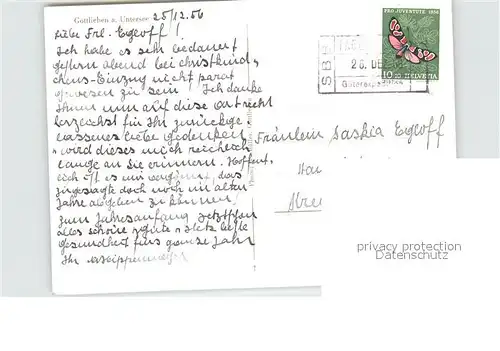 Gottlieben a. Untersee
25/12.56
Liebe Frl. Egloff!
Ich habe es sehr bedauert
gestern abend bei christkind
chens-Einzug nicht parat
gewesen zu sein Ich danke
Ihnen nun auf diese art recht
herzlichst für Ihr
liebe gedenken
wird dieses mich
lange an Sie erinnern. Hoffent
lich ist es mir vergönnt, das
zugesagte doch noch im alten
Jahre abgeben zu können
zum Jahresanfang
alles schöne gute stetz beste
gesundheit fürs ganze Jahr
Ihr
PRO JUVENTUTE 1956
10 HELVETIA
SBB
26. DEZ.
Fräulein Saskia Egloff
privacy protection
Datenschutz